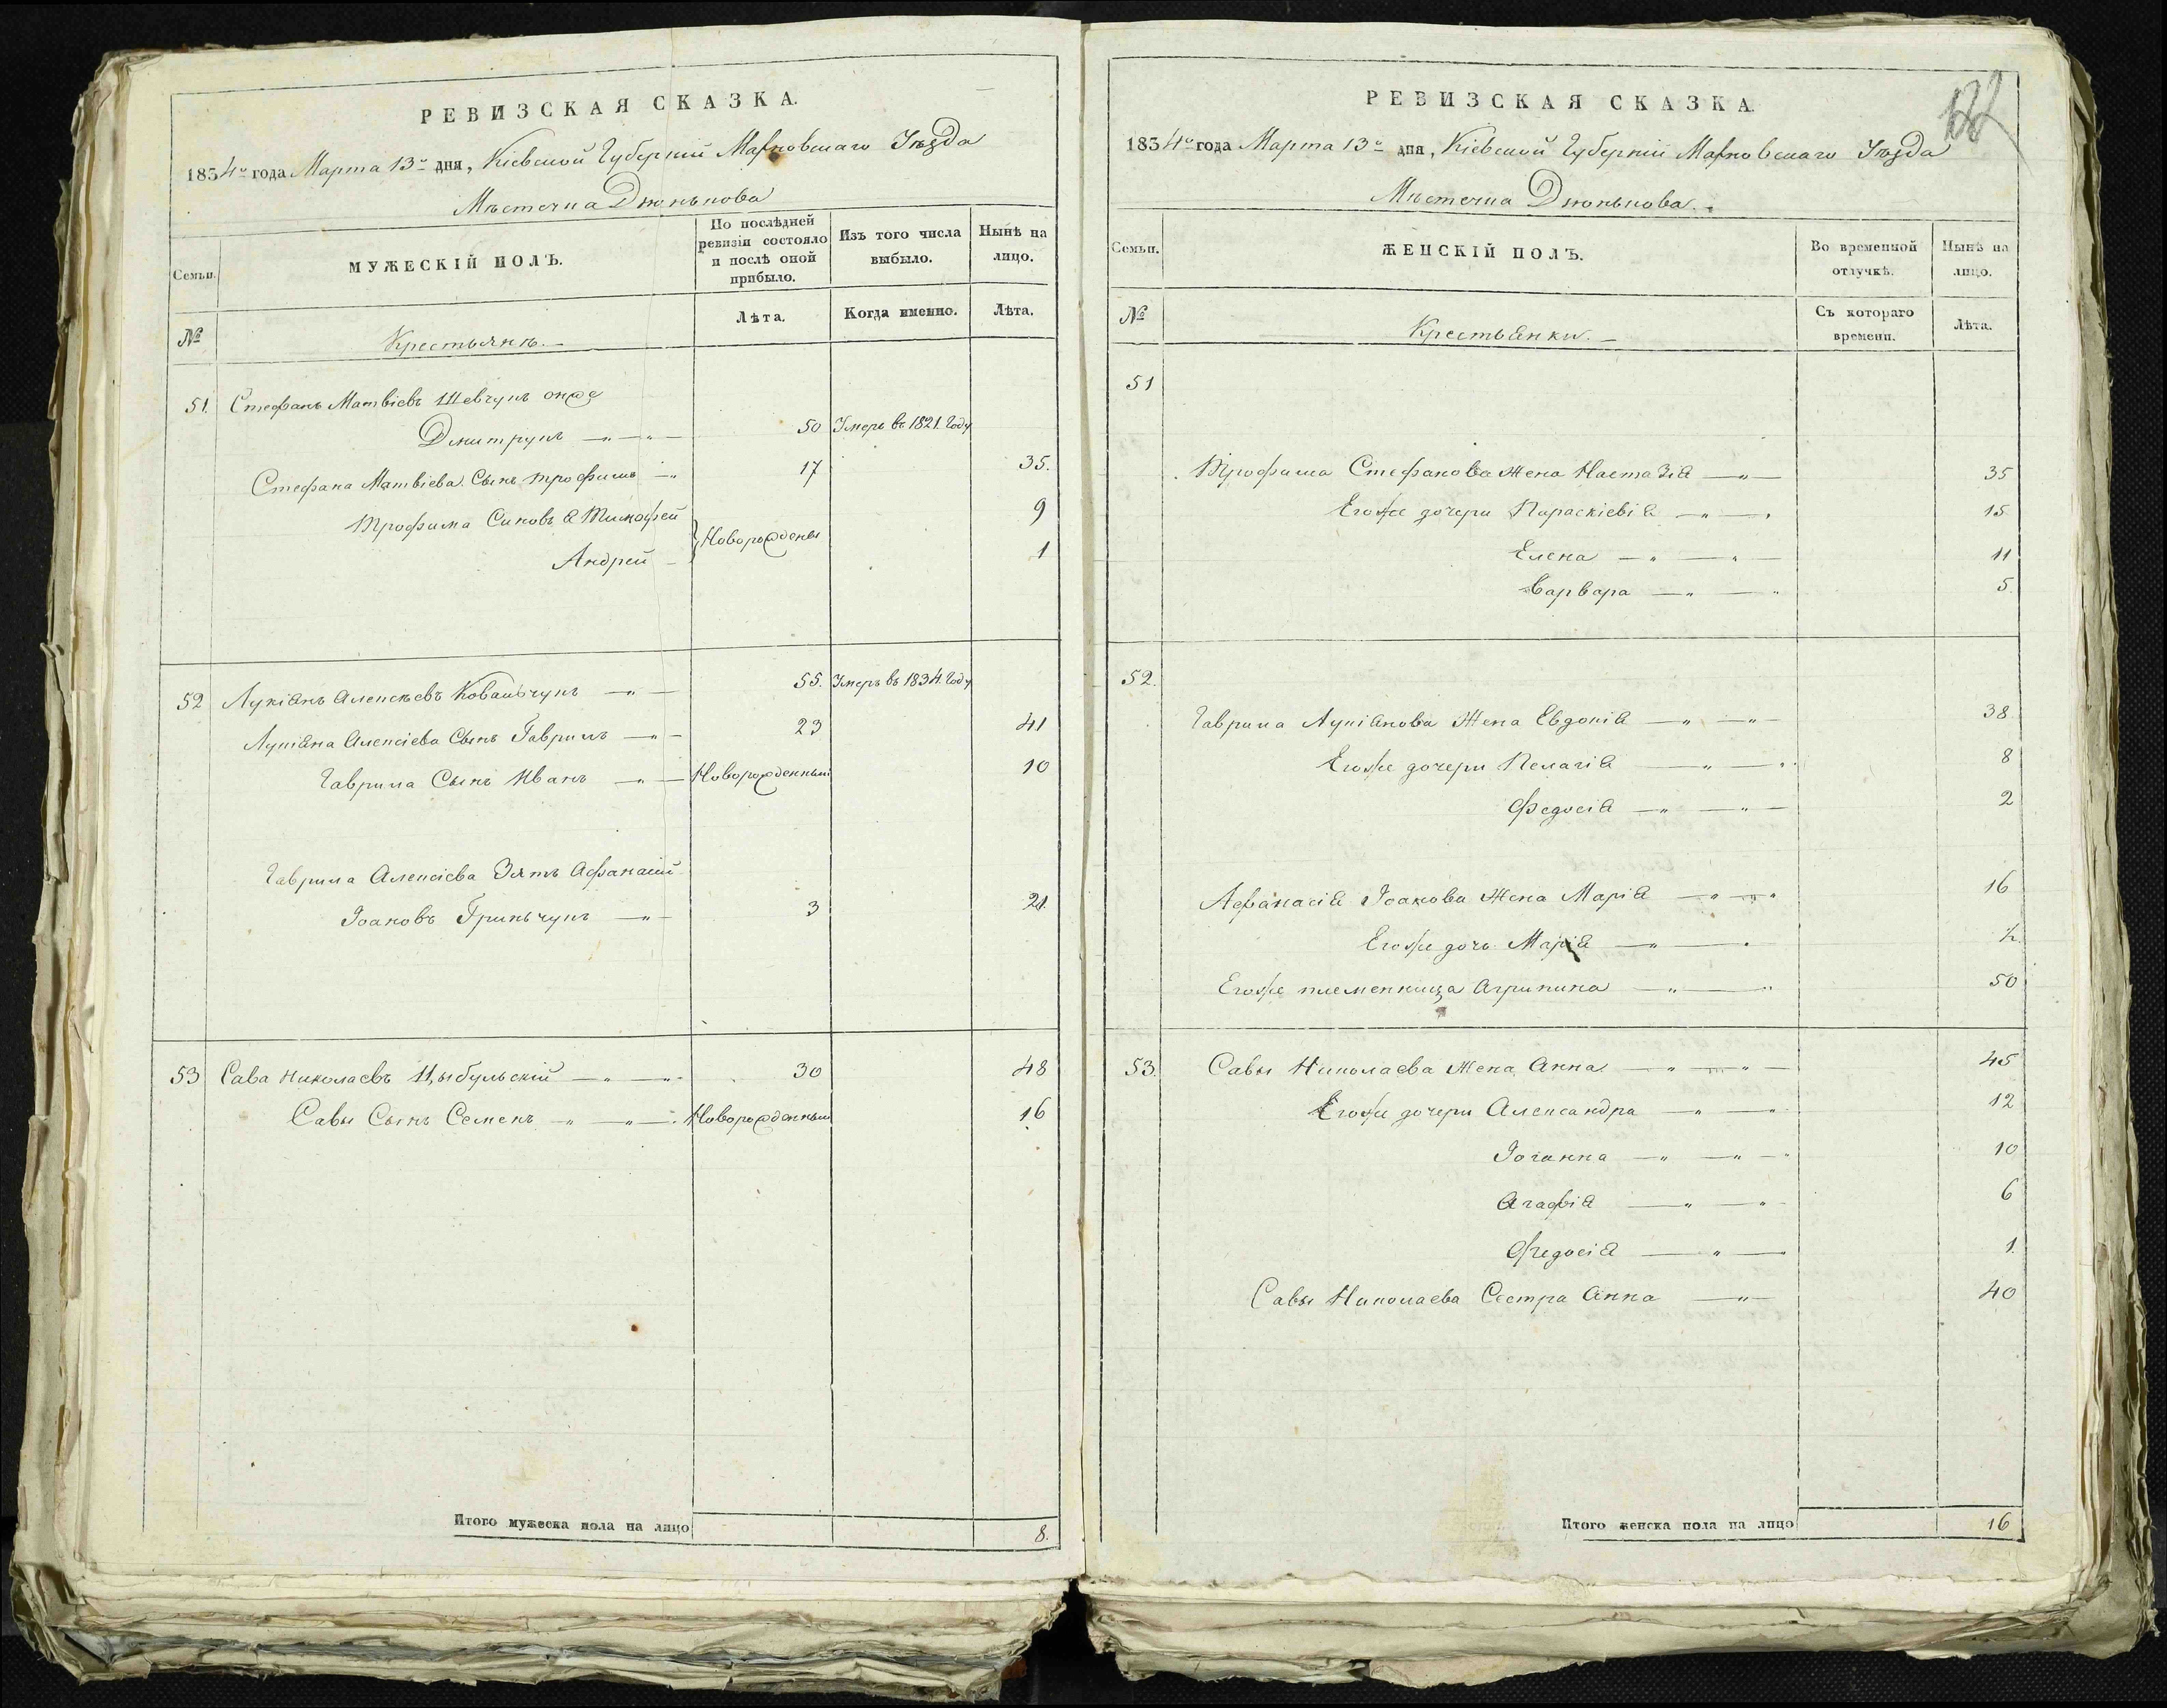 РЕВИЗСКАЯ СКАЗКА.
1834го года Марта 13го дня, Кіевской Губерніи Махновскаго Уѣзда
Мѣстечка Дзюнькова
Семьи.
МУЖЕСКІЙ ПОЛЪ.
По послѣдней ревизіи состояло и послѣ оной прибыло.
Изъ того числа выбыло.
Нынѣ на лицо.
№
Крестьянѣ.
Лѣта.
Когда именно.
Лѣта.
51. Стефанъ Матвіевъ Шевчукъ онже
Дмитрукъ 50 Умеръ въ 1821. Году
Стефана Матвіева Сынъ трофимъ 17 35.
Трофима Синовъа Тимофей 9
Новорождены
Андрей 1
52 Лукіанъ Алексѣевъ Ковальчукъ 55. Умеръ въ 1834. Году
Лукіана Алексіева Сынъ Гаврилъ 23 41
Гаврила Сынъ Иванъ Новорожденный 10
Гаврила Алексіева Зять Афанасій
Іоаковъ Гриньчукъ 3 21.
53 Сава Николаевъ Цыбульскій 30 48
Савы Сынъ Семенъ Новорожденный 16
Итого мужеска пола на лицо 8.
РЕВИЗСКАЯ СКАЗКА.
1834го года Марта 13го дня, Кіевской Губерніи Махновскаго Уѣзда
Мѣстечка Дзюнькова.
Семьи.
ЖЕНСКІЙ ПОЛЪ.
Во временной отлучкѣ.
Нынѣ на лицо.
№
Крестьянки.
Съ котораго времени.
Лѣта.
51
Трофима Стефанова Жена Настазія 35
Егоже дочери Параскіевія 15
Елена 11
Варвара 5.
52.
Гаврила Лукіанова Жена Евдокія 38
Егоже дочери Пелагія 8
Федосія 2
Афанасія Іоакова Жена Марія 16
Егоже дочь Марія ½
Егоже племенница Агрипина 50
53. Савы Николаева Жена Анна 45
Егоже дочери Александра 12
Іоганна 10
Агафія 6
Федосія 1.
Савы Николаева Сестра Анна 40
Итого женска пола на лицо 16